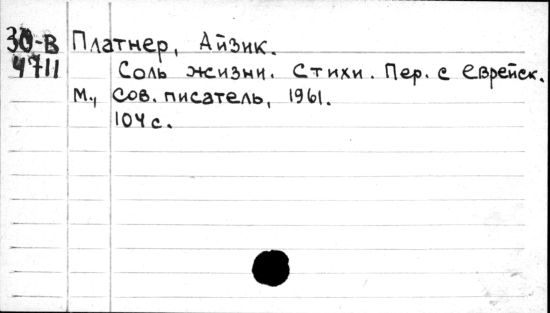 30-В Платнер, Айзик.
4711 Соль жизни. Стихи. Пер. с еврейск.
М., Сов. писатель, 1961.
104 с.